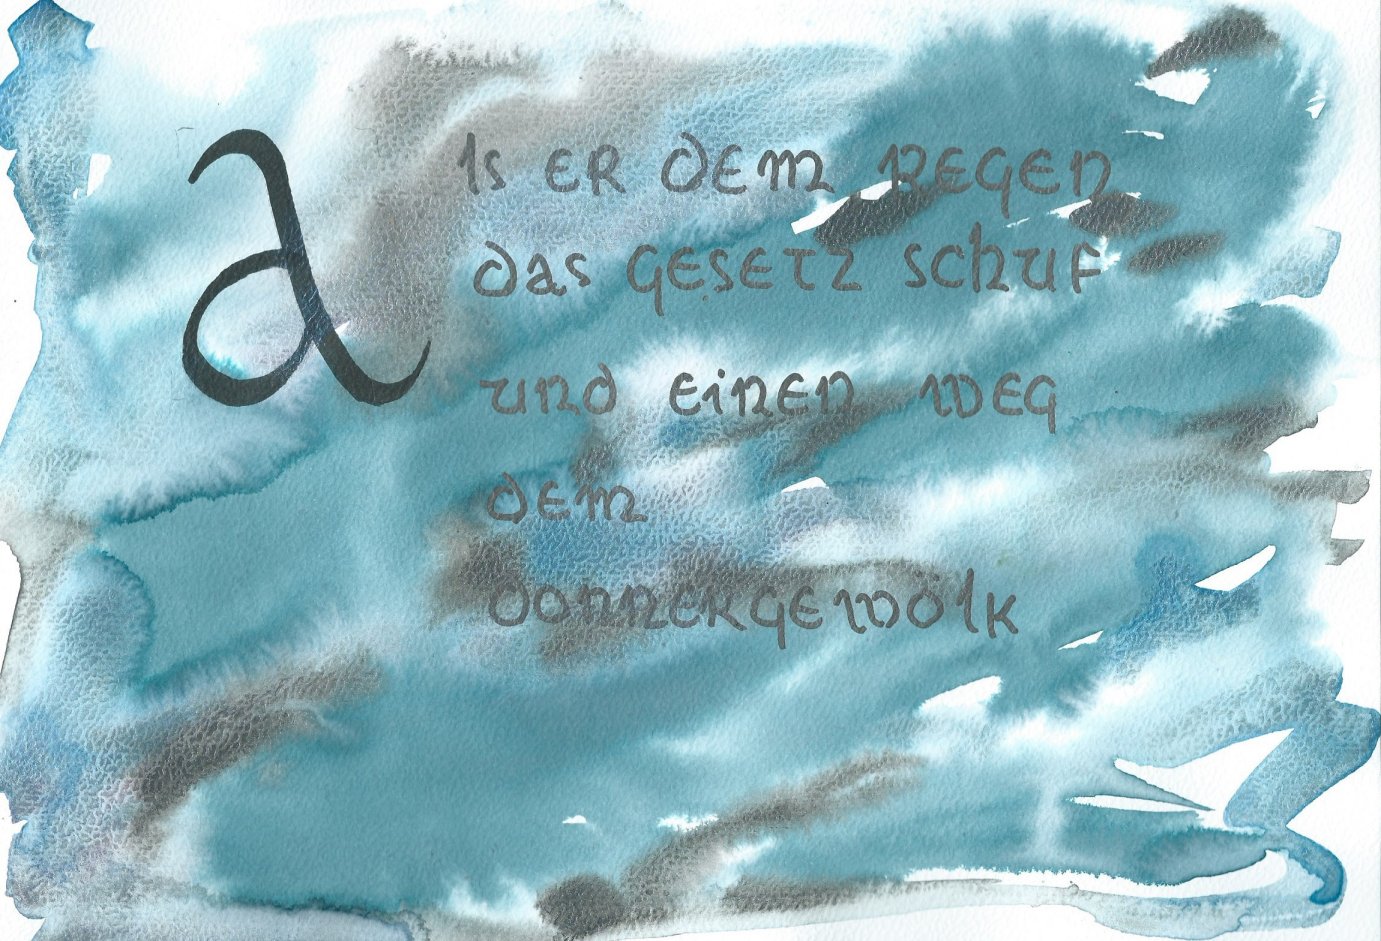 Als er dem Regen
das Gesetz schuf
und einen Weg
dem
Donnergewölk